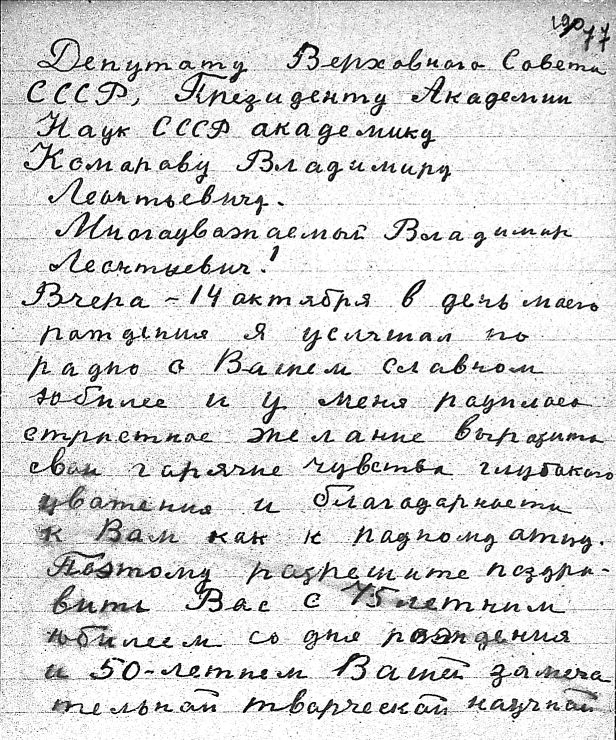 190 77
Депутату Верховного Совета
СССР, Президенту Академии
Наук СССР академику
Комарову Владимиру
Леонтьевичу.
Многоуважаемый Владимир
Леонтьевич!
Вчера – 14 октября в день моего
рождения я услышал по
радио о Вашем славном
юбилее и у меня родилось
страстное желание выразить
свои горячие чувства глубокого
уважения и благодарности
к Вам как к родному отцу.
Поэтому разрешите поздра-
вить Вас с 75 летним
юбилеем со дня рождения
и 50-летием Вашей замеча
тельной творческой научной